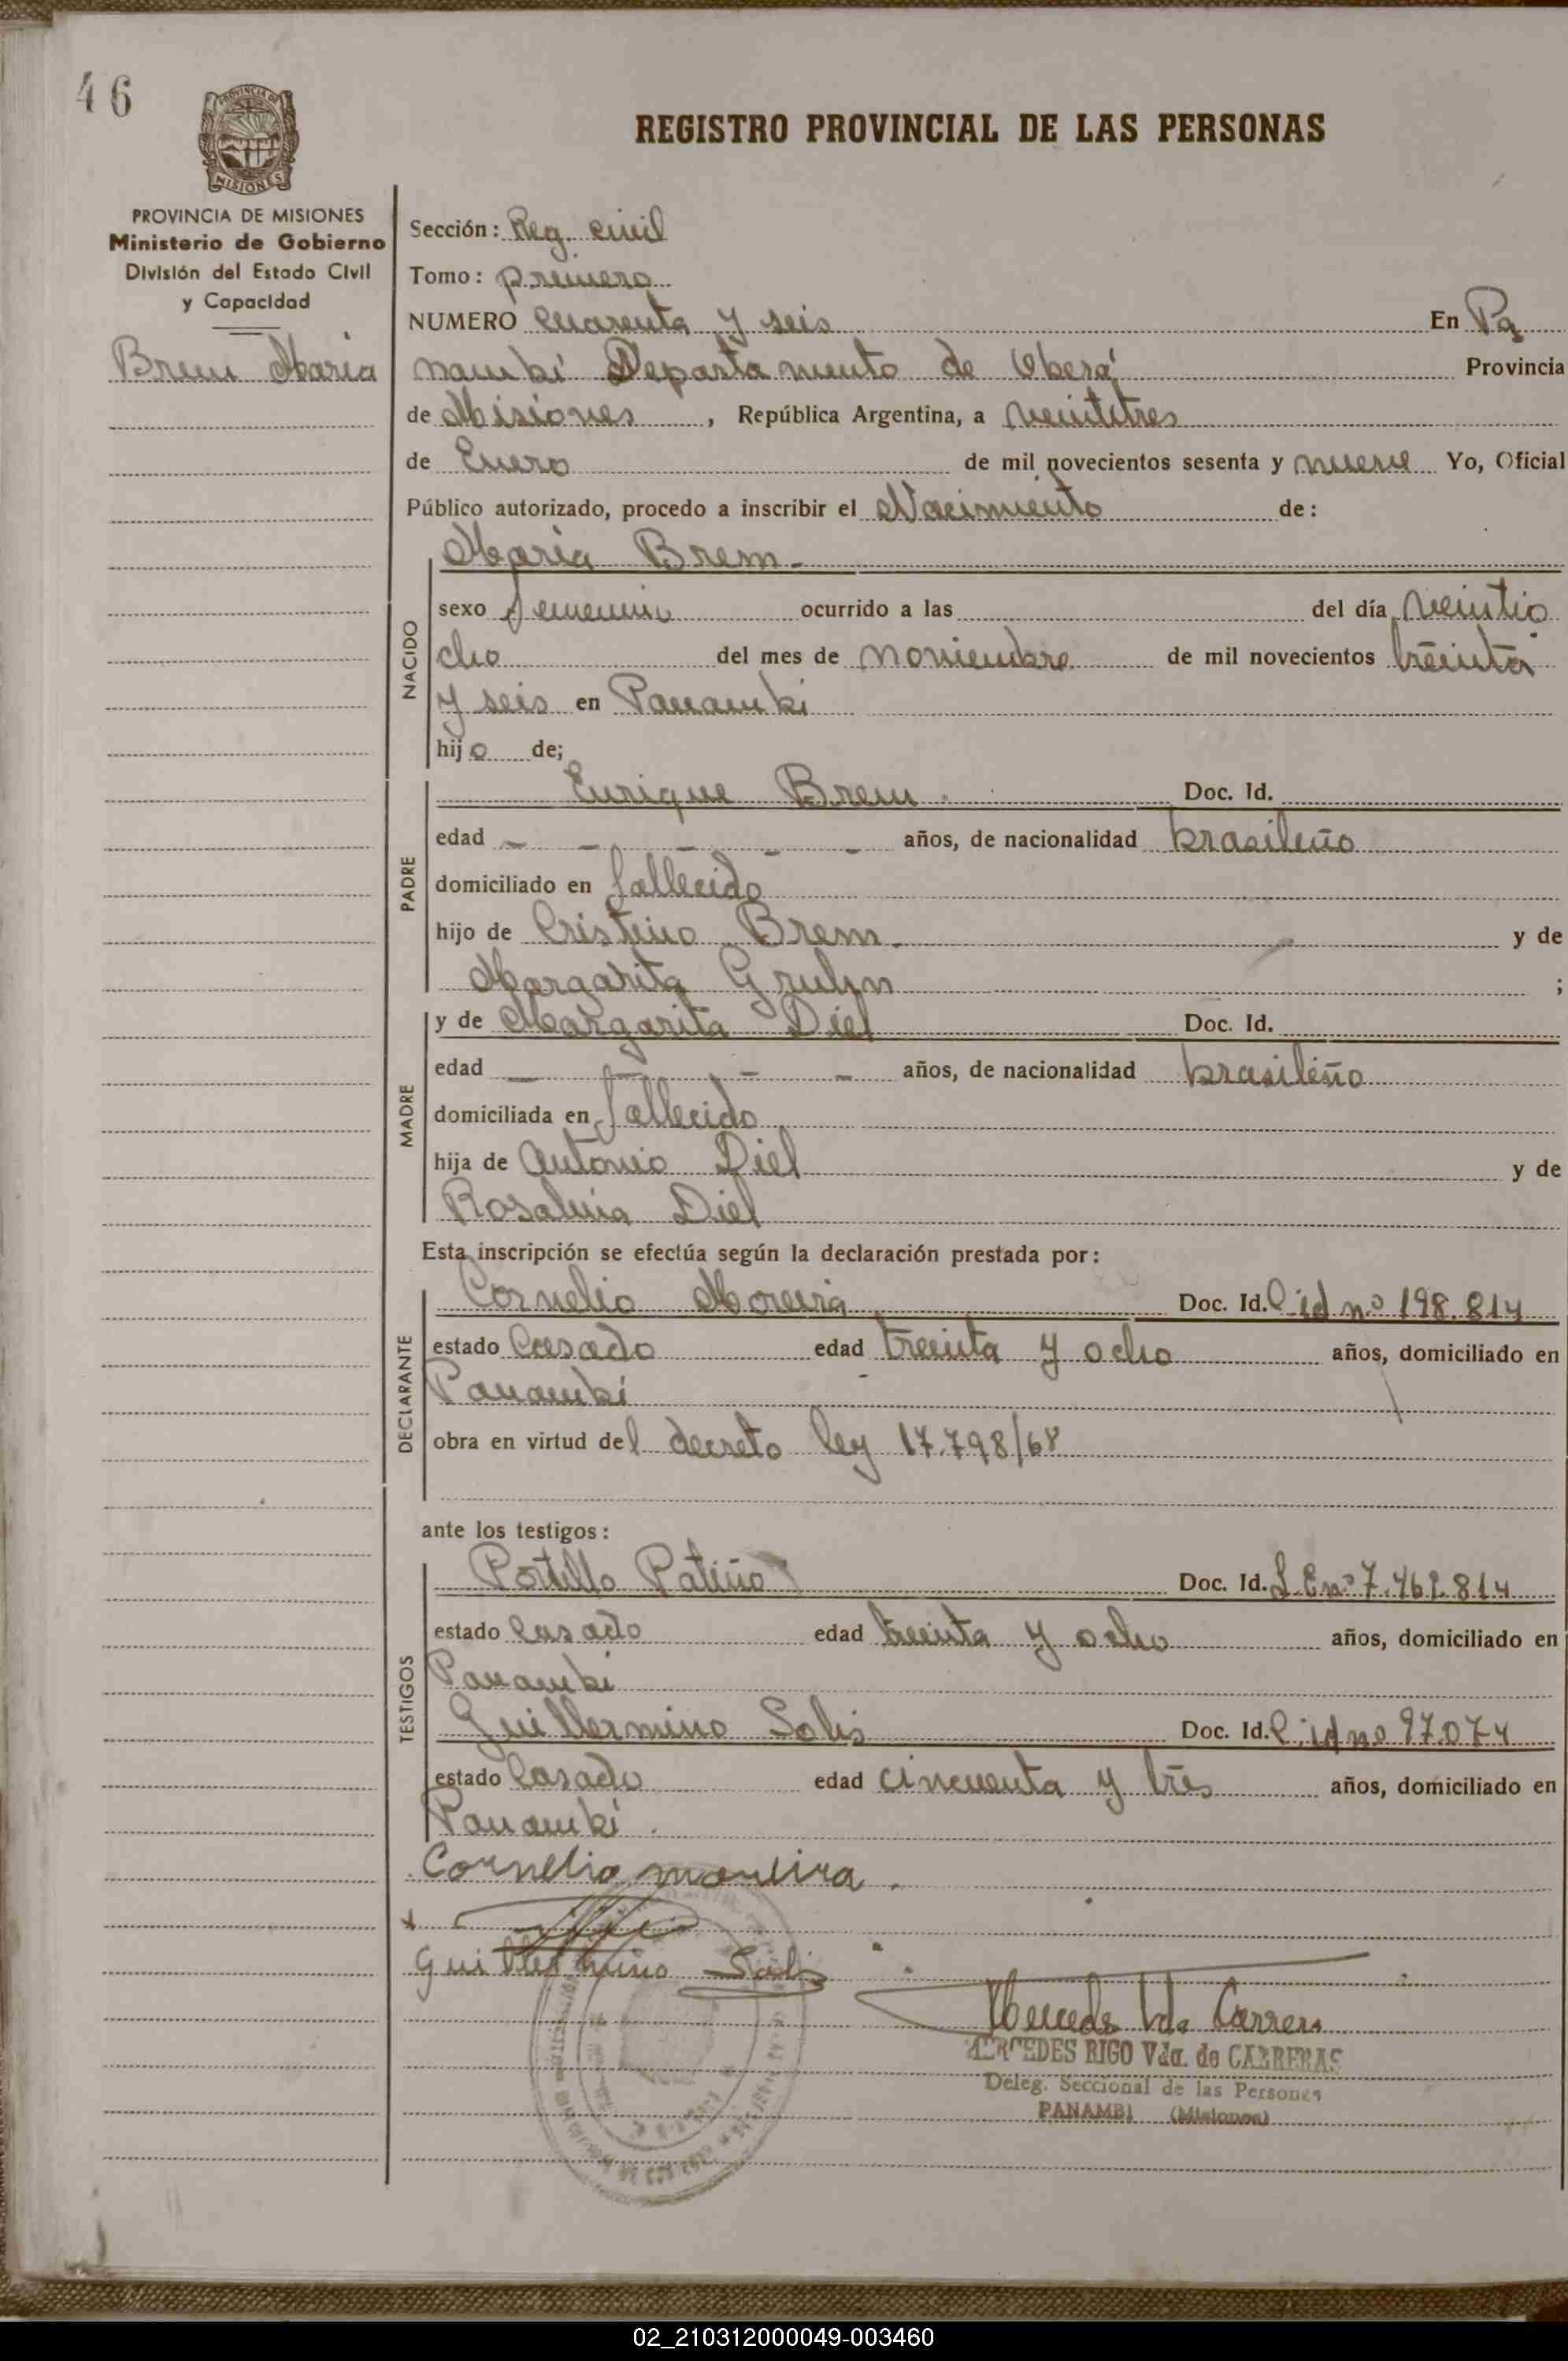 46
PROVINCIA DE MISIONES
REGISTRO PROVINCIAL DE LAS PERSONAS
PROVINCIA DE MISIONES
Ministerio de Gobierno
División del Estado Civil
y Capacidad
Brem Maria
Sección: Reg. civil
Tomo: primero
NUMERO Cuarenta y seis En Pa
nambí Departamento de Oberá Provincia
de Misiones, República Argentina, a veintitres
de Enero de mil novecientos sesenta y nueve Yo, Oficial
Público autorizado, procedo a inscribir el Nacimiento de:
NACIDO
Maria Brem.-
sexo femenin ocurrido a las del día veintio
cho del mes de noviembre de mil novecientos treinta
y seis en Panambi
hijo de;
PADRE
Enrique Brem. Doc. Id.
edad - - - - - años, de nacionalidad brasileño
domiciliado en fallecido
hijo de Cristino Brem. y de
Margarita Gruhn ;
MADRE
y de Margarita Diel Doc. Id.
edad - - - - años, de nacionalidad brasileño
domiciliada en fallecido
hija de Antonio Diel y de
Rosalina Diel
Esta inscripción se efectúa según la declaración prestada por:
DECLARANTE
Cornelio Moreira Doc. Id. C.id nº 198.814
estado Casado edad treinta y ocho años, domiciliado en
Panambí
obra en virtud del decreto ley 17.798/68
ante los testigos:
TESTIGOS
Portillo Patiño Doc. Id. L.E nº 7.462.814
estado casado edad treinta y ocho años, domiciliado en
Panambi
Guillermino Solis Doc. Id. C.id nº 97.074
estado Casado edad cincuenta y tres años, domiciliado en
Panambí.
Cornelio moreira.
Guillermino Solis
Mercedes Vda Carreras
MERCEDES RIGO Vda. de CARRERAS
Deleg. Seccional de las Personas
PANAMBI (Misiones)
02_210312000049-003460